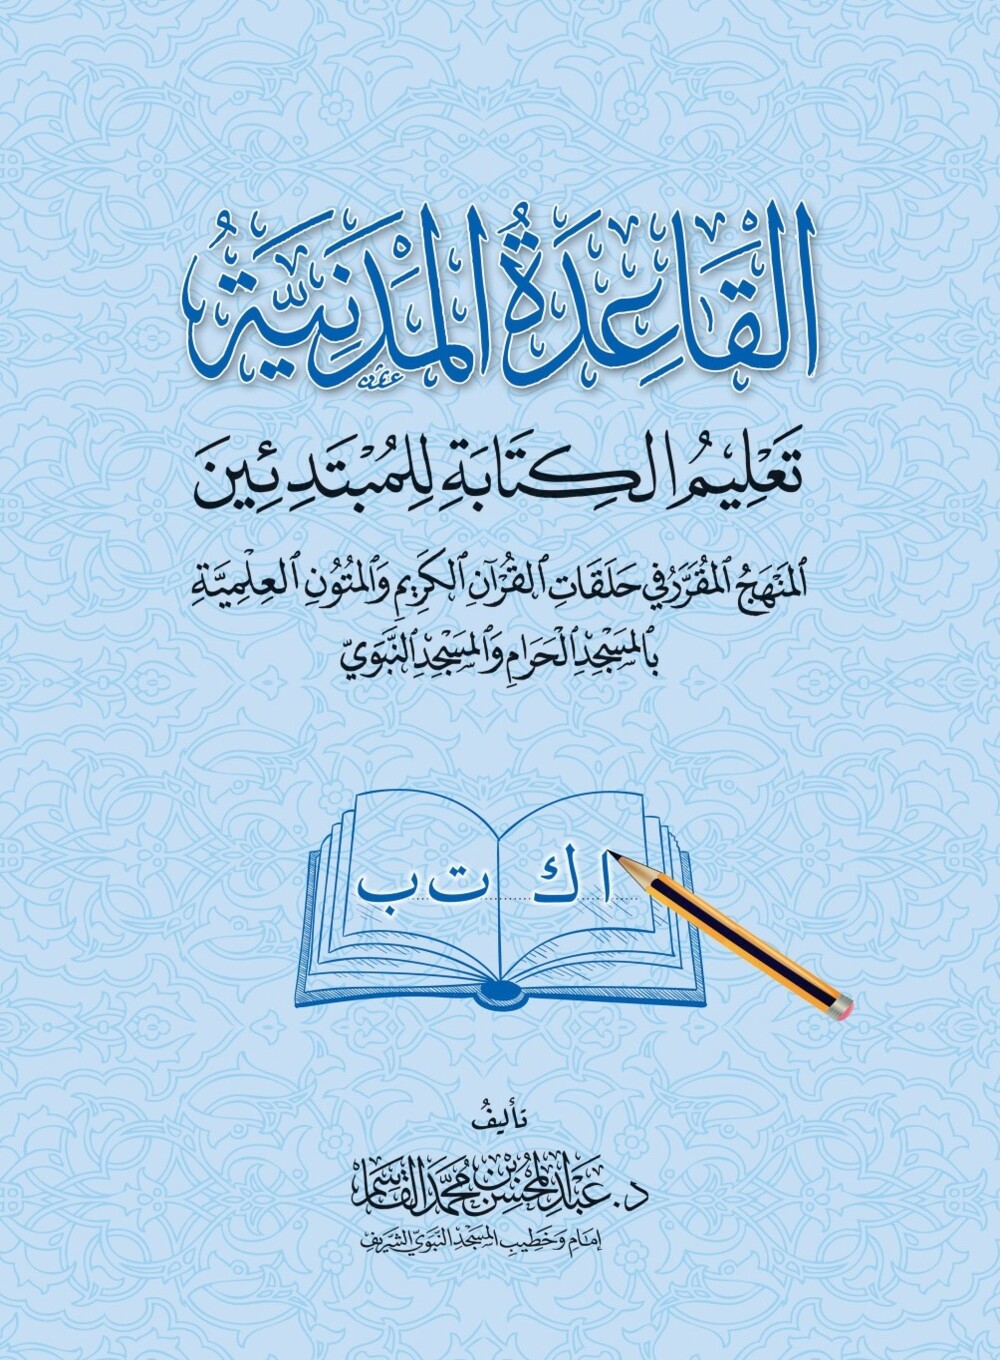 القَاعِدَةُ المَدَنِيَّةُ
تَعْلِيمُ الكِتَابَةِ لِلْمُبْتَدِئِينَ
المَنْهَجُ المُقَرَّرُ فِي حَلَقَاتِ القُرْآنِ الكَرِيمِ وَالمُتُونِ العِلْمِيَّةِ
بِالمَسْجِدِ الْحَرَامِ وَالمَسْجِدِ النَّبَوِيِّ
ا ك ت ب
تأليفُ
د. عَبْدِ المُحْسِنِ بْنِ مُحَمَّدٍ القَاسِمِ
إمَامِ وَخَطِيبِ المَسْجِدِ النَّبَوِيِّ الشَّرِيفِ